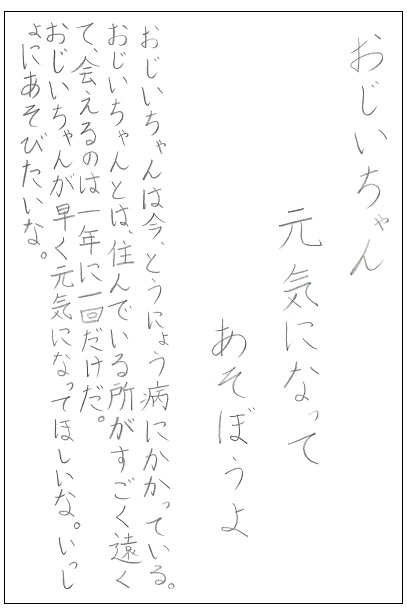 おじいちゃん
元気になって
あそぼうよ
おじいちゃんは今、とうにょう病にかかっている。
おじいちゃんとは、住んでいる所がすごく遠く
て、会えるのは一年に一回だけだ。
おじいちゃんが早く元気になってほしいな。いっし
ょにあそびたいな。